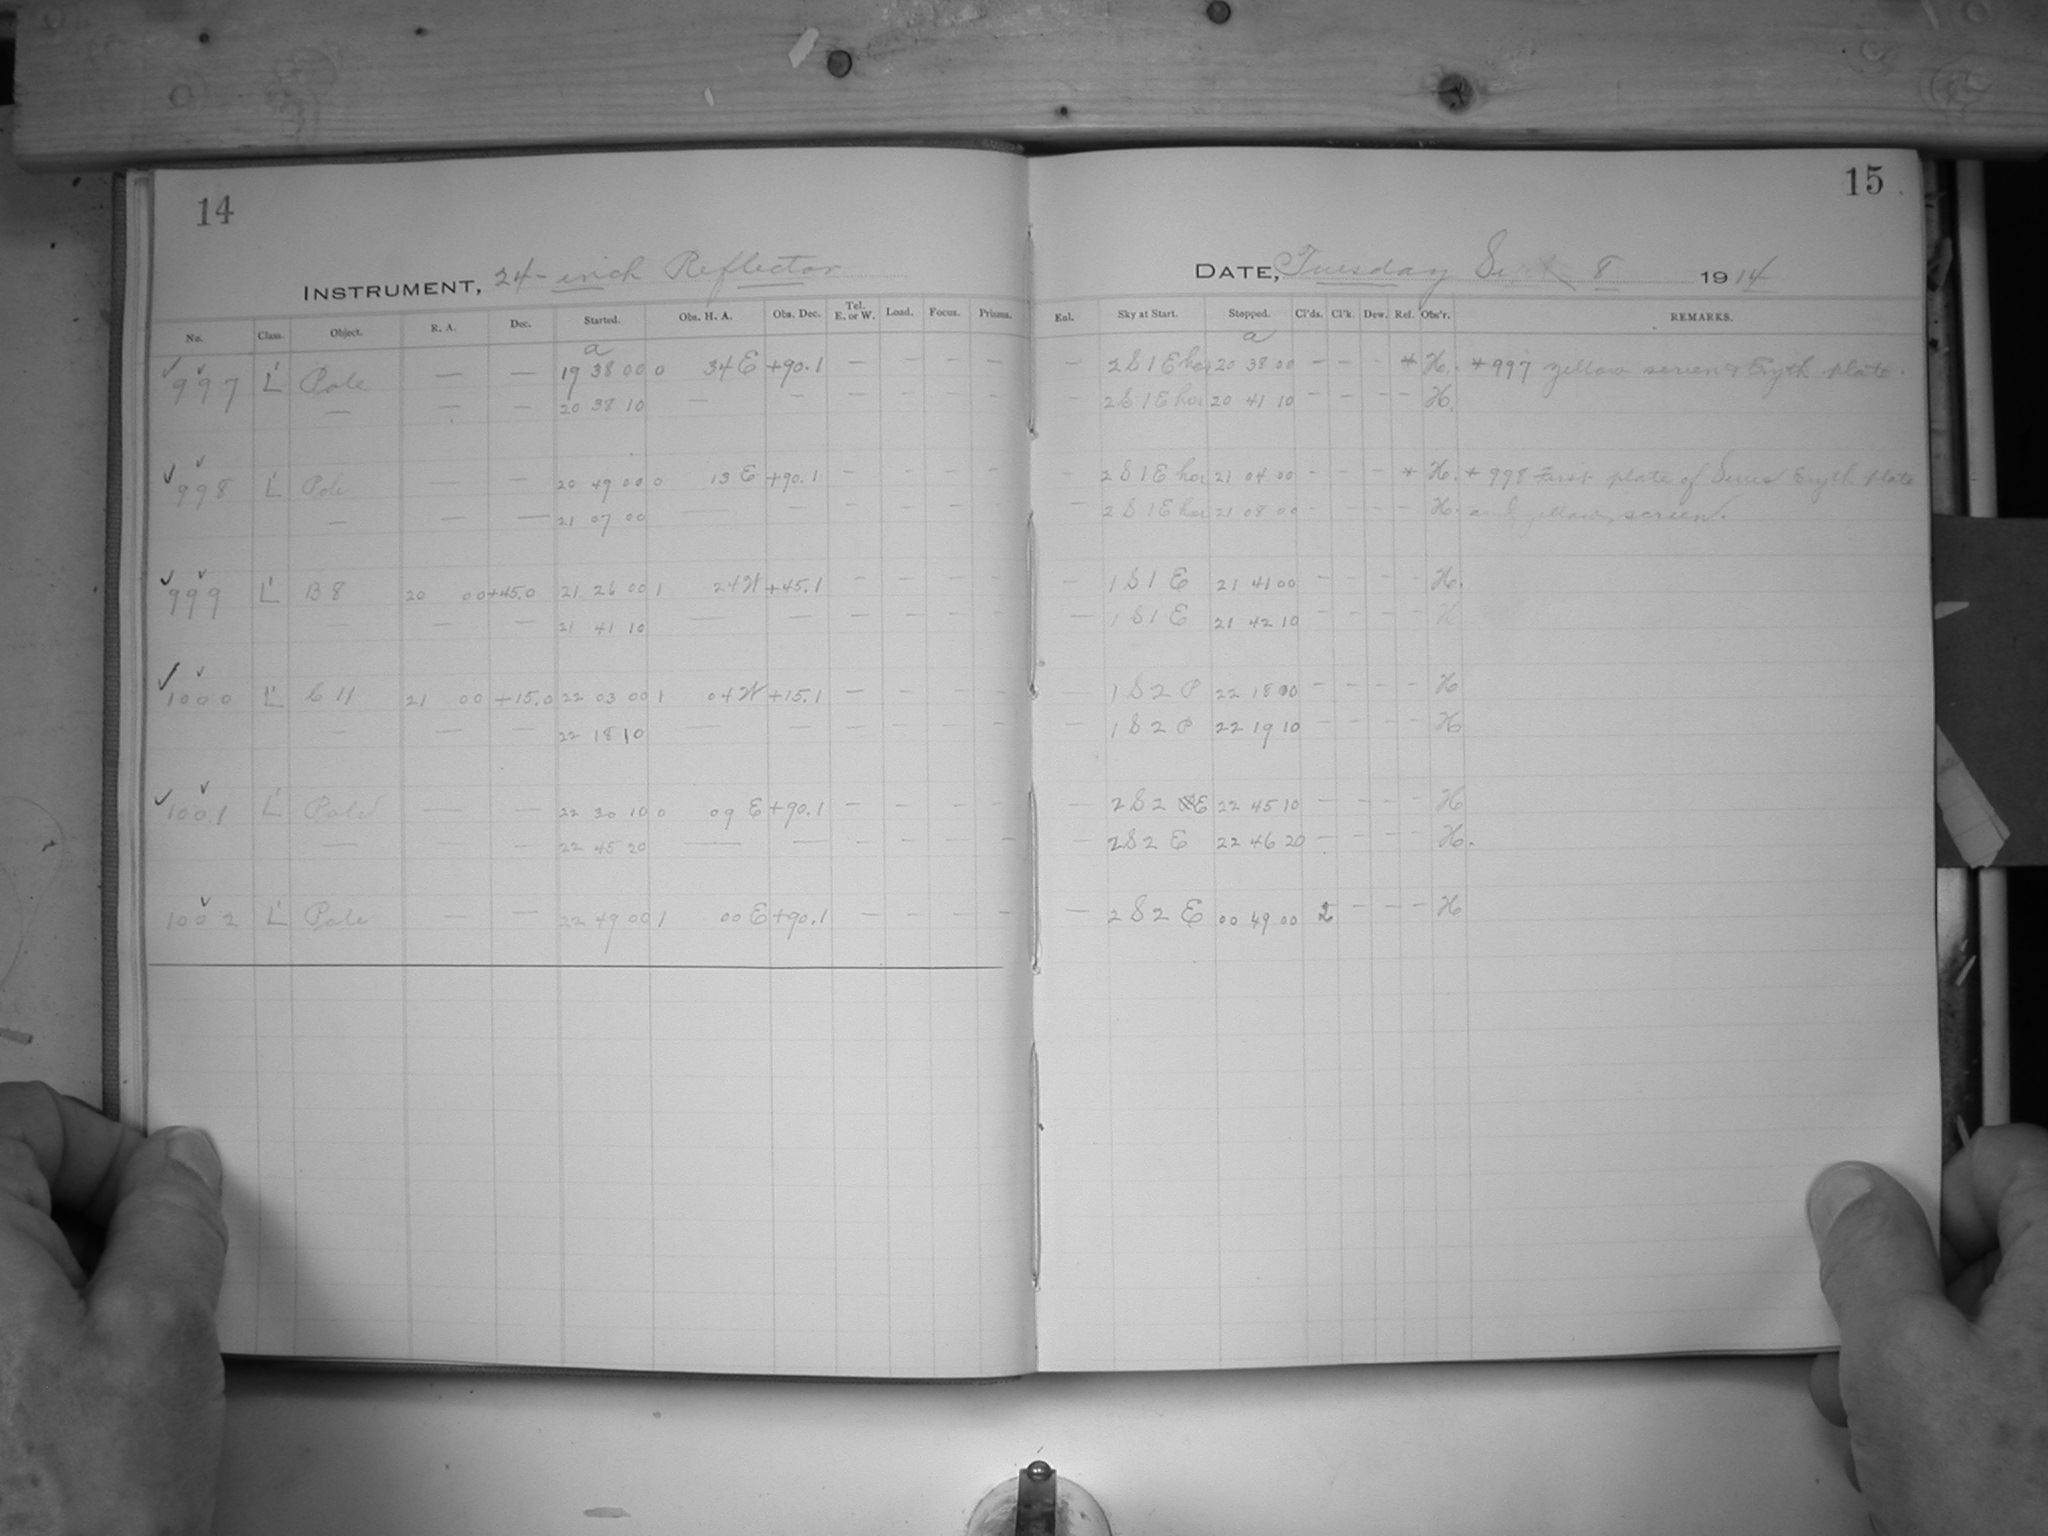 14
INSTRUMENT, 24-inch Reflector
No. Class. Object. R. A. Dec. Started. Obs. H. A. Obs. Dec. Tel. E. or W. Load. Focus. Prisms.
a
997 L' Pole — — 19 38 00 0 34 E +90.1 — — — —
— — — 20 38 10 — — — — — —
998 L' Pole — — 20 49 00 0 13 E +90.1 — — — —
— — — 21 07 00 — — — — — —
999 L' B 8 20 00 +45.0 21 26 00 1 24 W +45.1 — — — —
— — — 21 41 10 — — — — — —
1000 L' C 11 21 00 +15.0 22 03 00 1 04 W +15.1 — — — —
— — — 22 18 10 — — — — — —
1001 L' Pole — — 22 30 10 0 09 E +90.1 — — — —
— — — 22 45 20 — — — — — —
1002 L' Pole — — 22 49 00 1 00 E +90.1 — — — —
15
DATE, Tuesday Sept. 8 1914
Enl. Sky at Start. Stopped. Cl'ds. Cl'k. Dew. Ref. Obs'r. REMARKS.
a
— 2 S 1 E hor 20 38 00 — — — * H. * 997 yellow screen & Eryth plate.
— 2 S 1 E hor 20 41 10 — — — — H.
— 2 S 1 E hor 21 04 00 — — — * H. * 998 First plate of Series Eryth plate
— 2 S 1 E hor 21 08 00 — — — — H. and yellow screen.
— 1 S 1 E 21 41 00 — — — — H.
— 1 S 1 E 21 42 10 — — — — H
— 1 S 2 P 22 18 00 — — — — H
— 1 S 2 P 22 19 10 — — — — H
— 2 S 2 E 22 45 10 — — — — H
— 2 S 2 E 22 46 20 — — — — H.
— 2 S 2 E 00 49 00 2 — — — H